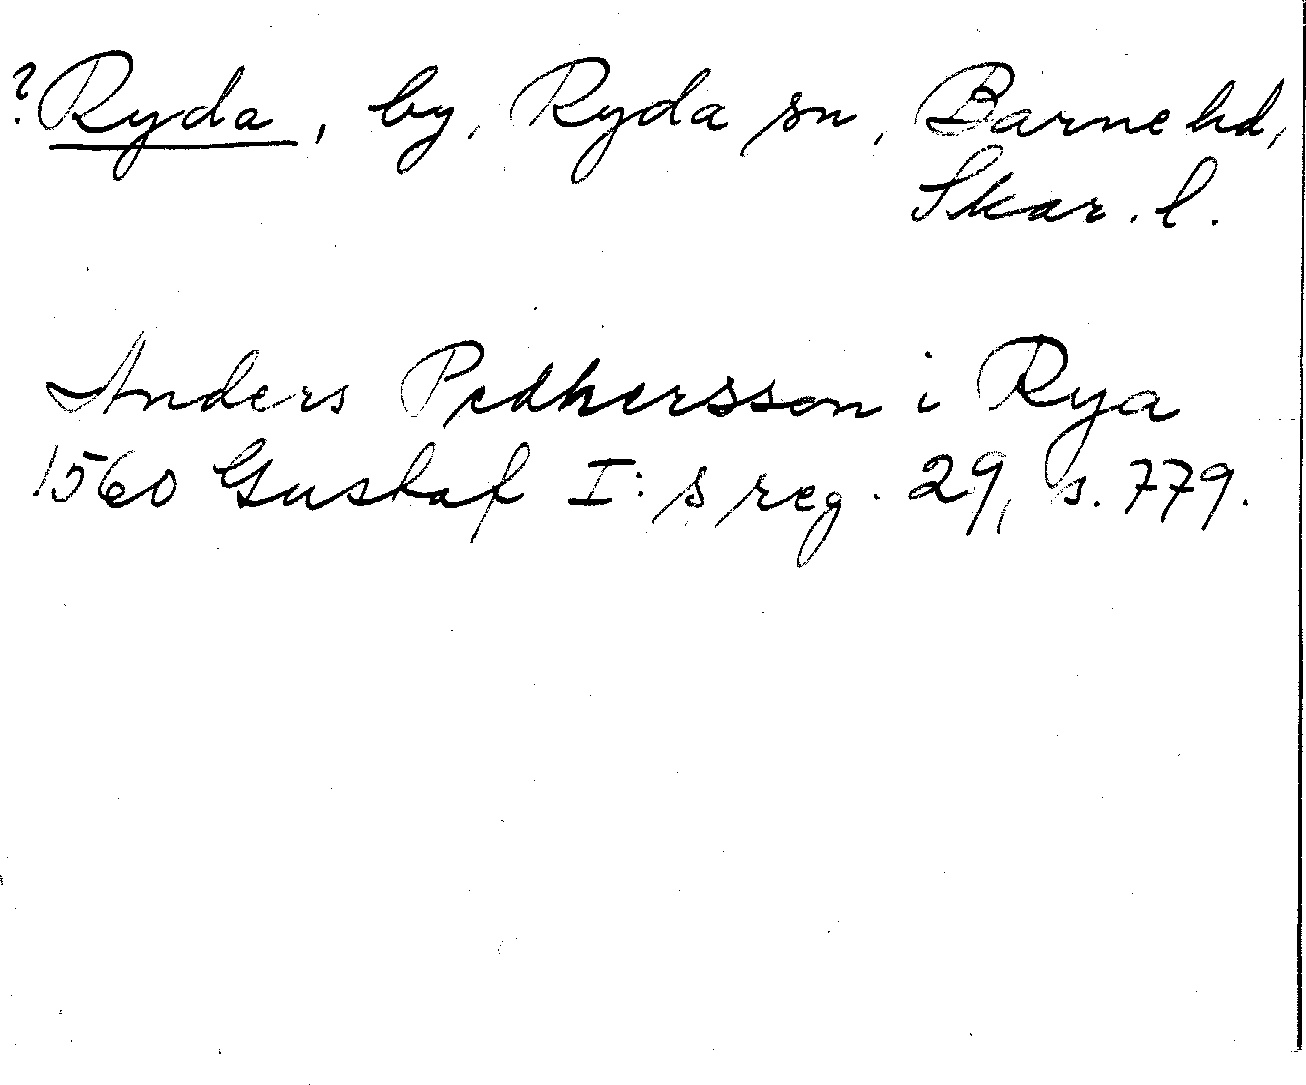 ?Ryda, by, Ryda sn, Barne hd,
Skar. l.
Anders Pedhersson i Rya
1560 Gustaf I:s reg. 29, s. 779.